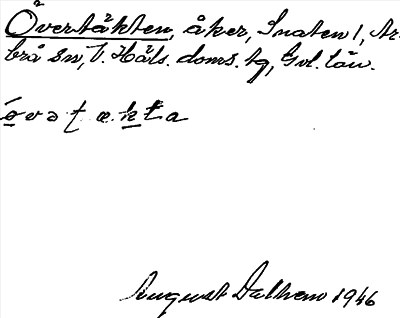 Övertäkten, åker, Snaten 1, Ar-
brå sn, V. Häls. doms. tg, Gvl. län.
óvətækta
August Dalhem 1946